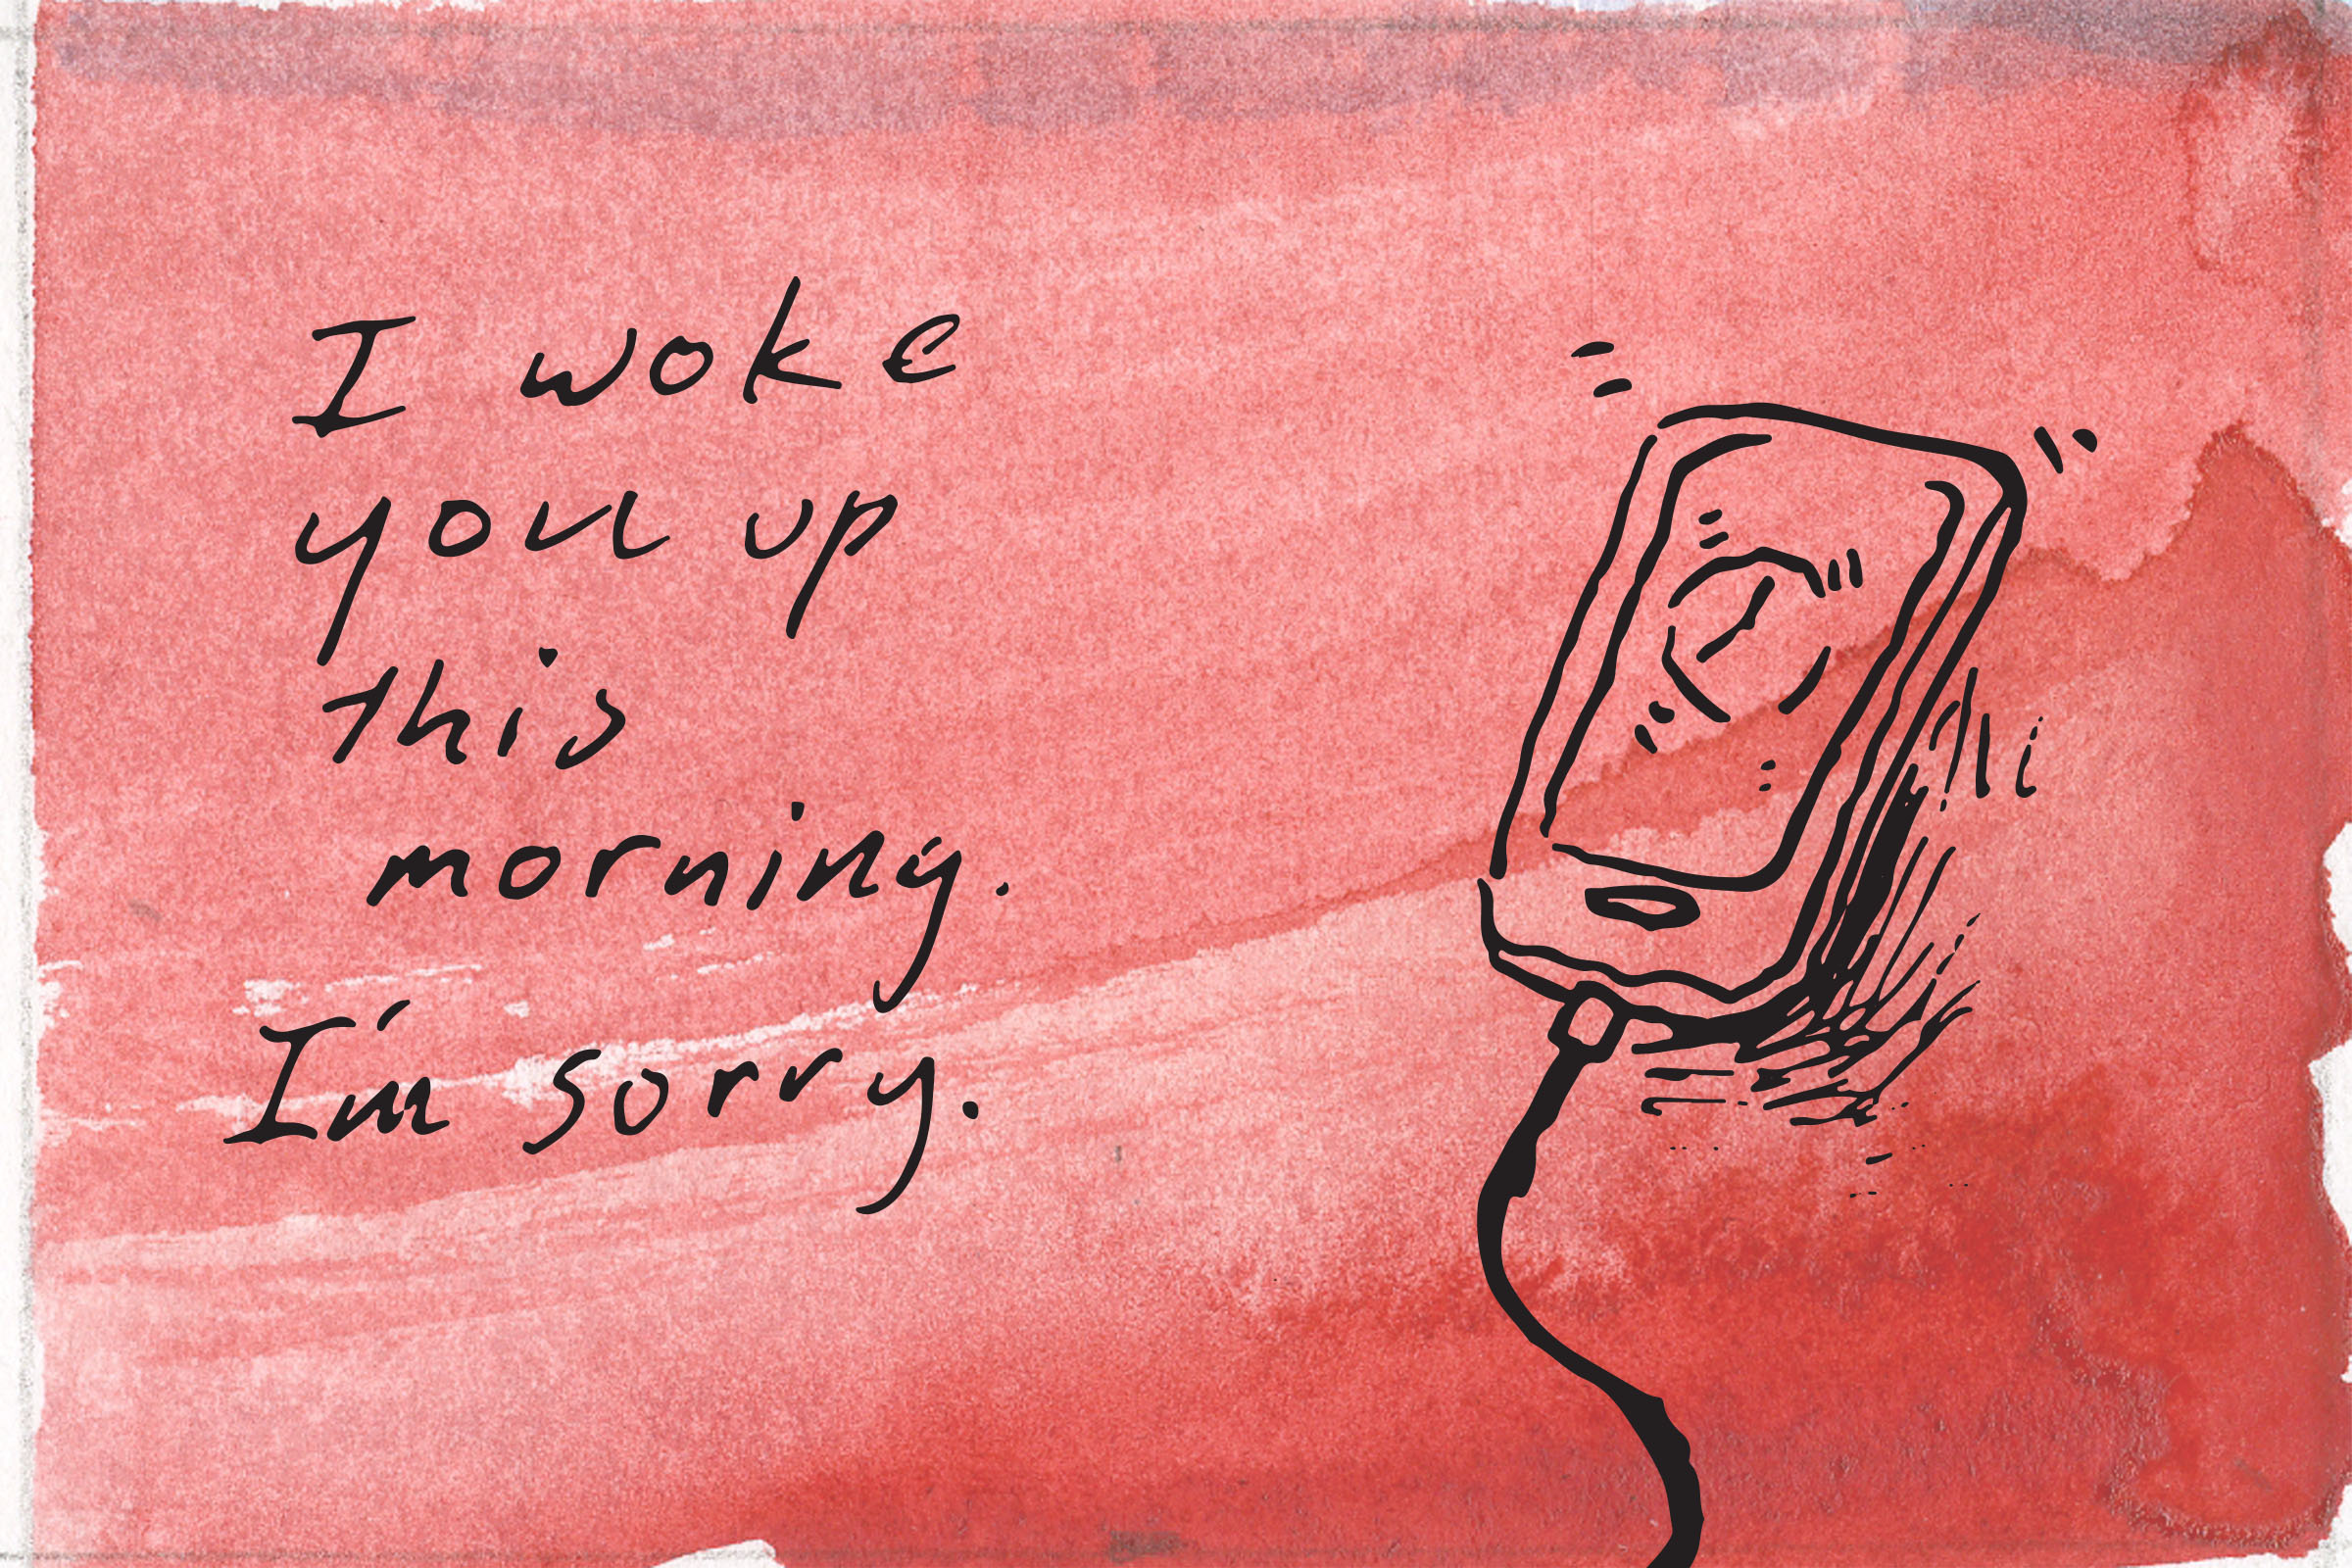 I woke
you up
this
morning.
I'm sorry.